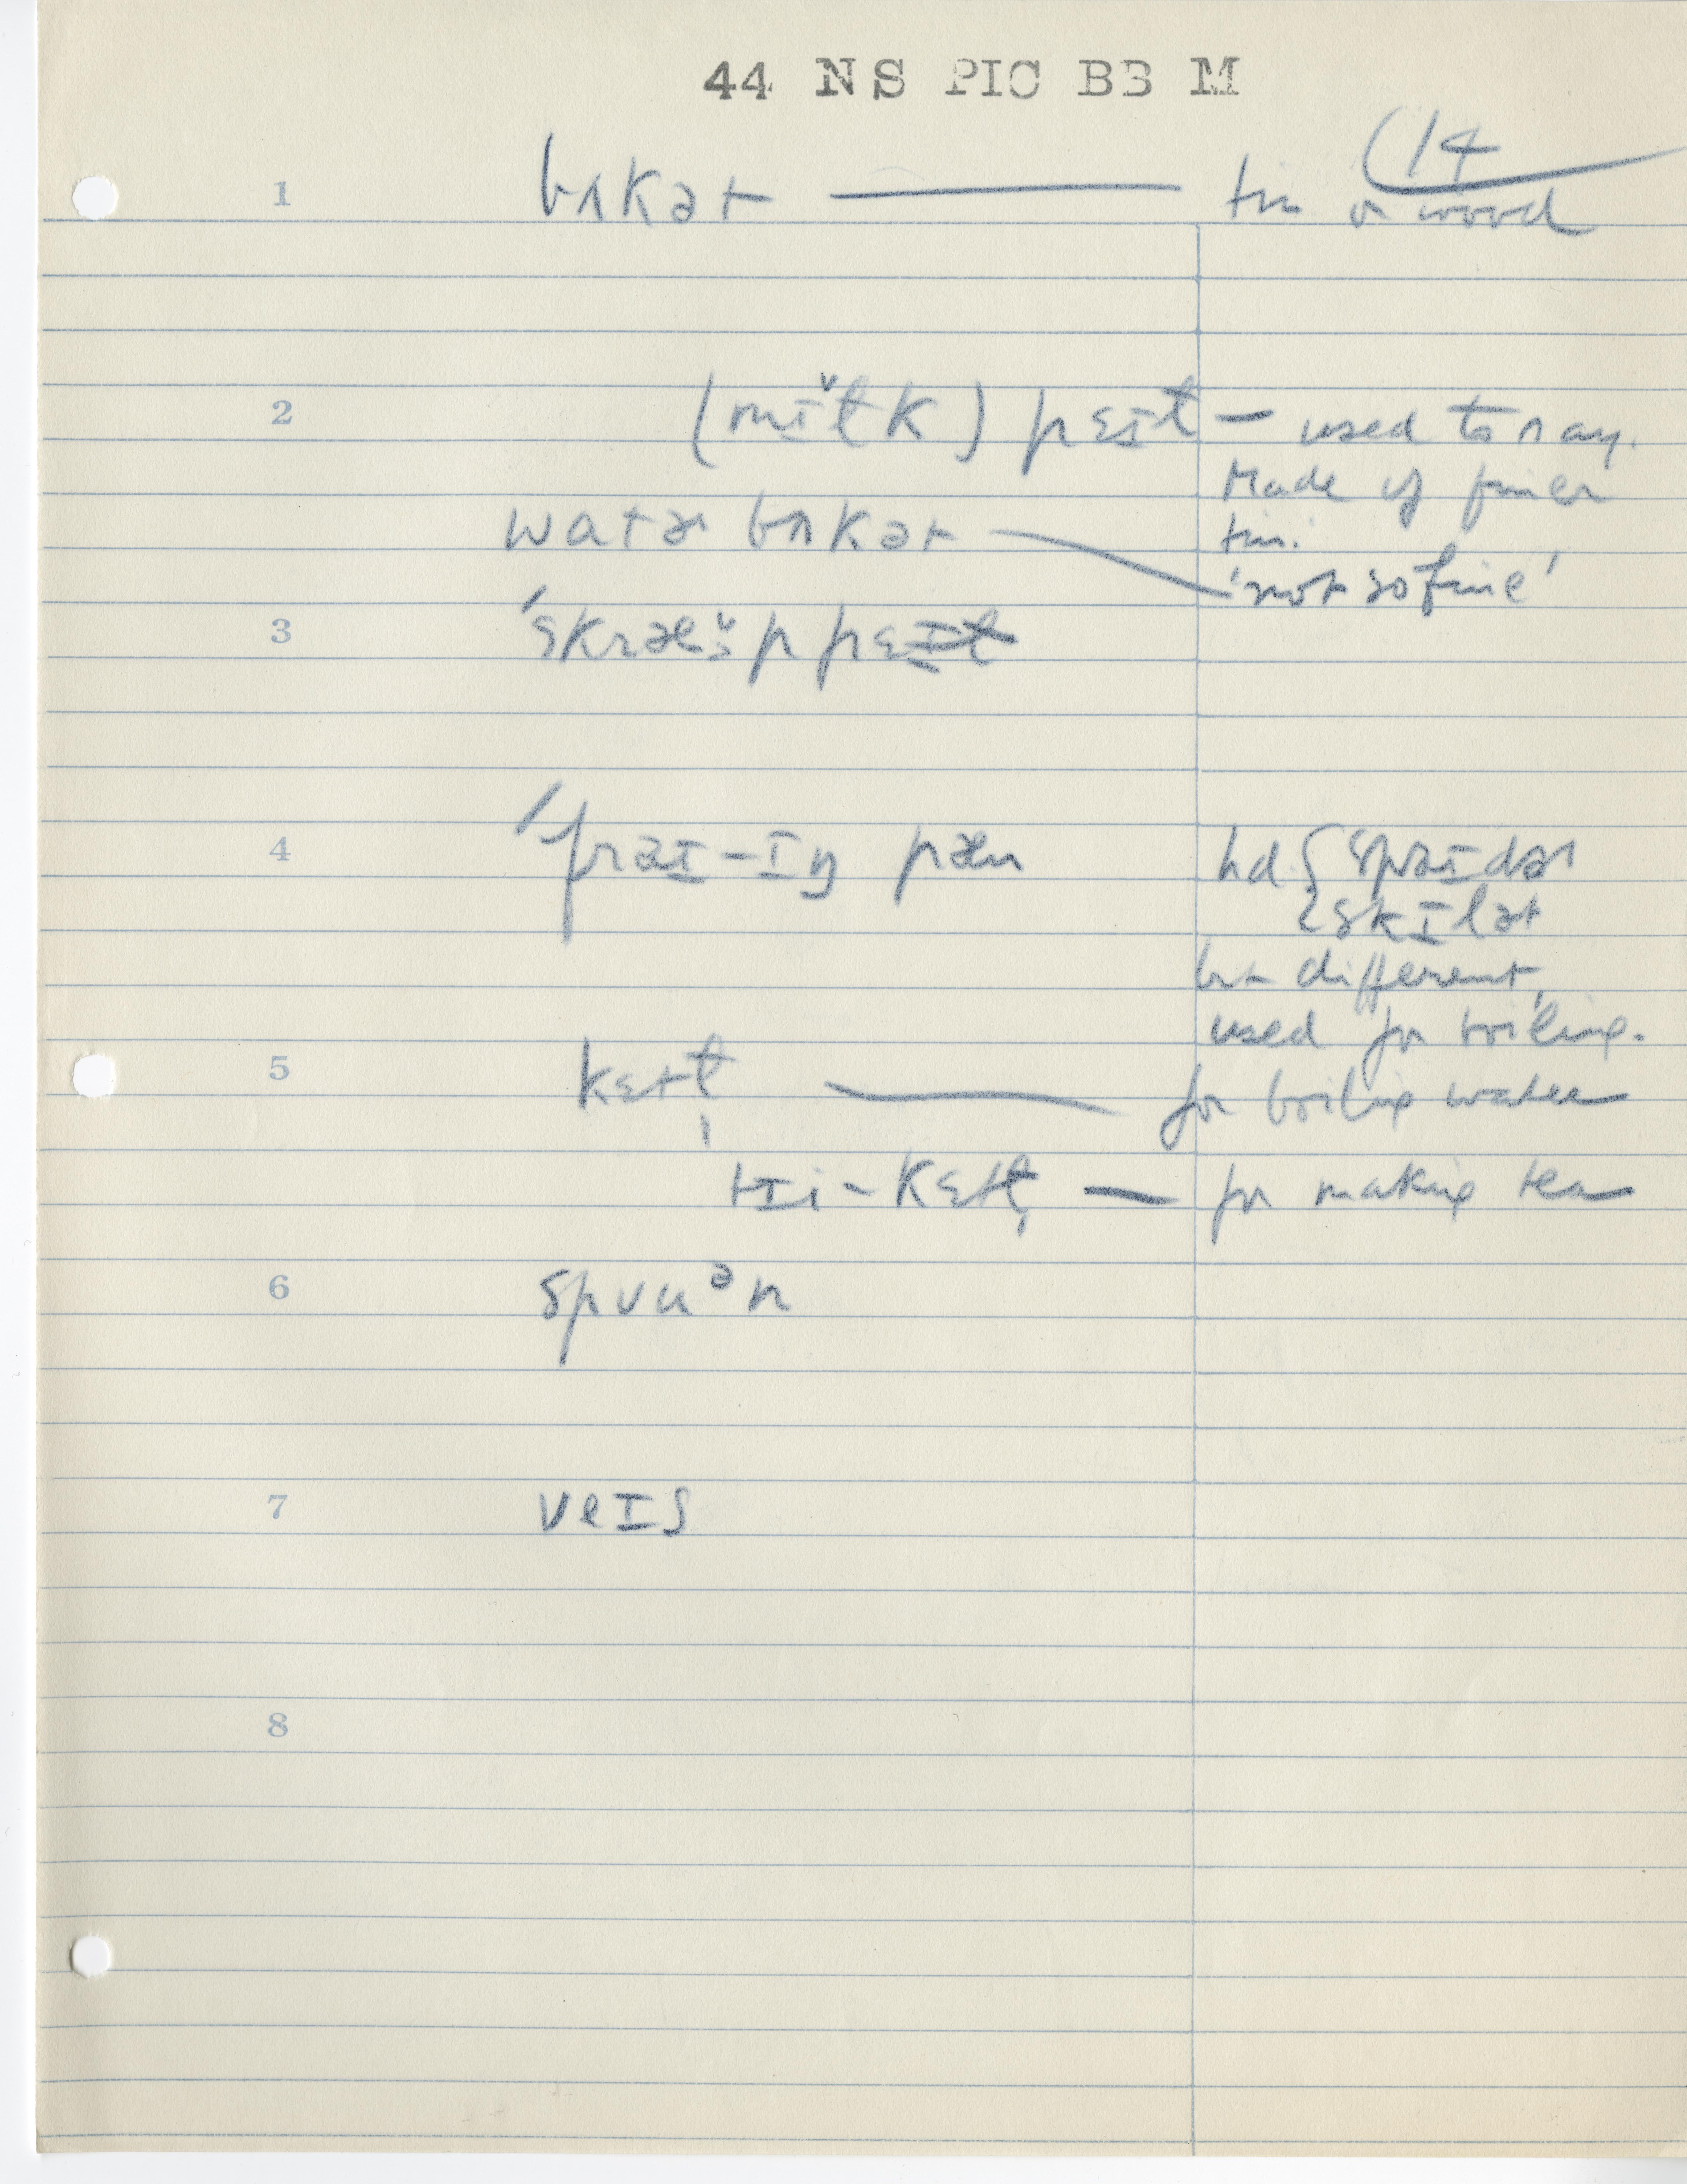 44 NS PIC BB M
(14
1 bʌkət — tin or wood
2 (mɪ̆ɫk) pɛɪɫ — used to say.
Made of finer
tin.
watɚ bʌkət — 'not so fine'
3 ˈskræˑp pɛɪɫ
4 ˈfraɪ-ɪŋ pæn
hd { spaɪdɚ
skɪlət
but different,
used for boiling.
5 kɛtɫ̩ — for boiling water
tɪi-kɛtɫ̩ — for making tea
6 spʊuᵊn
7 veɪs
8